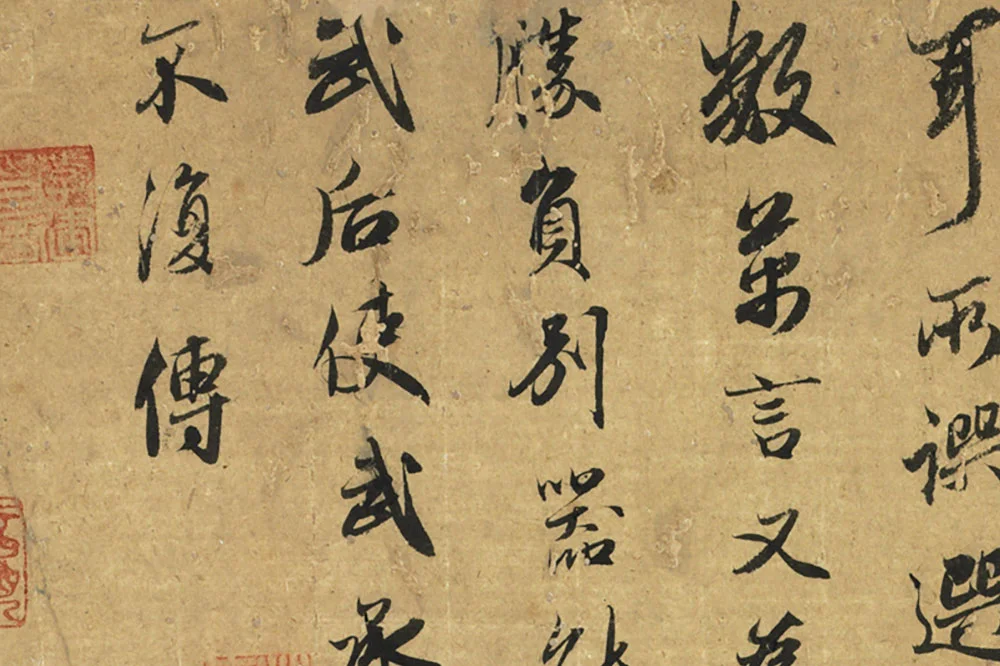 耳所譔選
數萬言又
勝負別器
武后使武承
不復傳